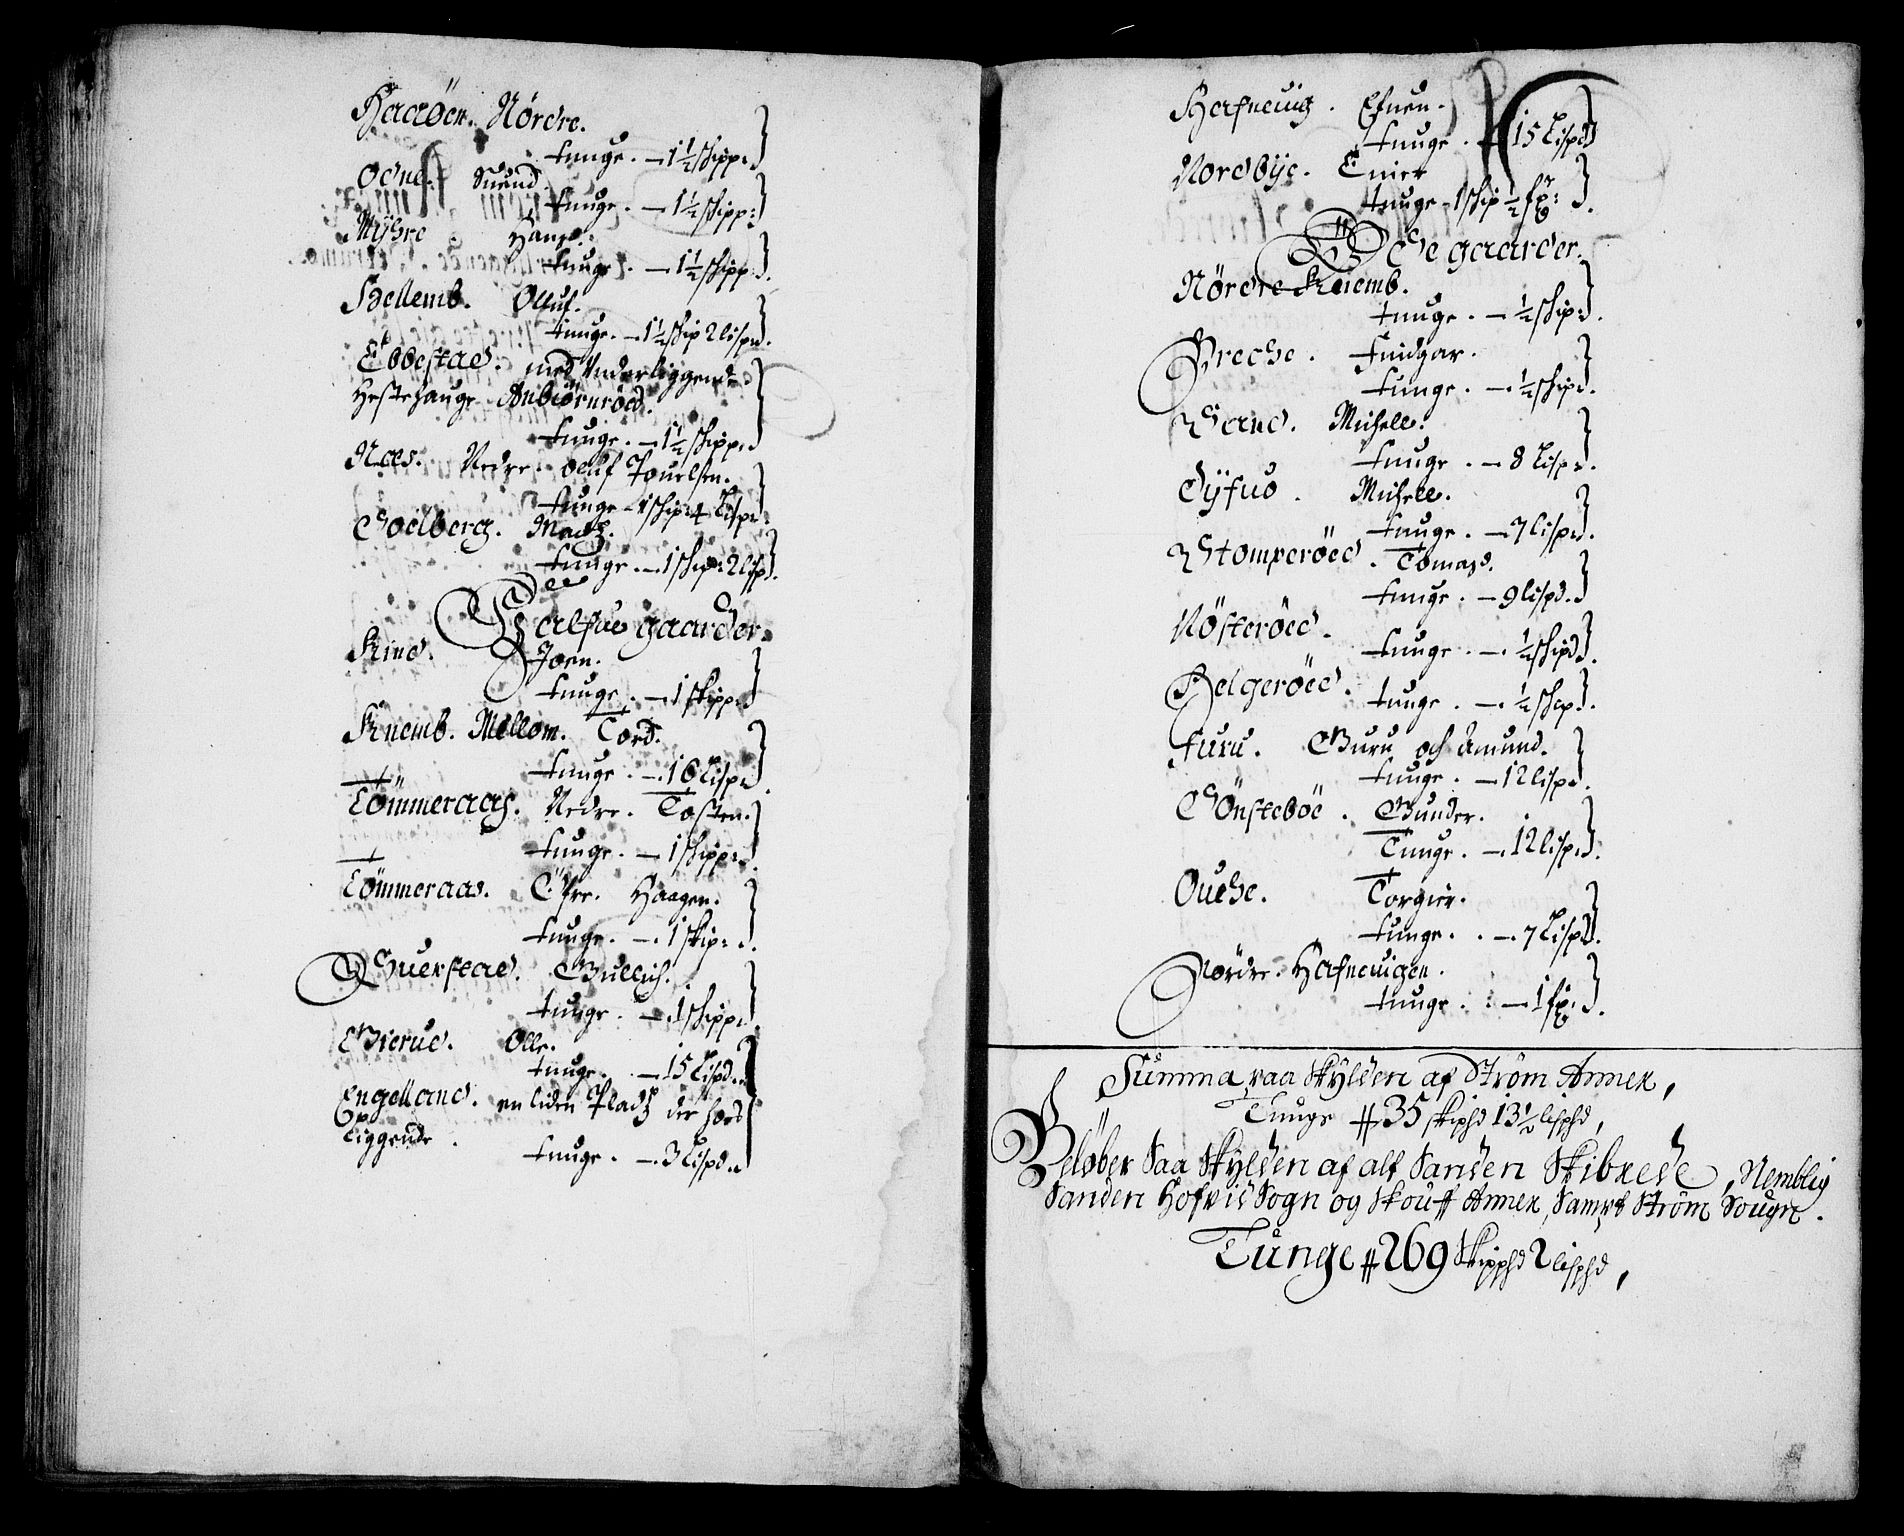 Haaöen. Nördre.
tunge. — 1½ schipp:d
Odne. Suend.
tunge. — 1½ schipp:d
Myhre Hans.
tunge. — 1½ schipp:d.
Hellemb. Olluf.
tunge. — 1½ schip 2 lispd.
Ebbestad. med Underliggende
Hestehauge Anbiörnröed.
tunge. — 1½ schipp:d
Næs. Nedre. oluf Pouelsen.
tunge — 1 schip: 4 Lisp:d
Soelberg. Madz.
tunge. — 1 schip: 2 lispd.
Halfue gaarder.
Kind. Joen.
tunge. — 1 skipp:d
Knemb. Mellom. Tord.
tunge. — 16 Lisp:d
Tömmeraas. Nedre. Tosten.
tunge. — 1 schipp:d
Tömmeraas. Öfre. Haagen.
tunge. — 1 skip:d.
Suerstad. Gullich.
tunge. — 1 schipp:d
Gierud. Olle.
tunge. — 15 Lispd.
Engelland. en liden Pladz der hoes
Liggende.
tunge. — 3 Lispd.
Hafneuig. Efuen.
tunge. — 15 Lispd
Nordbÿe. Einer
tunge — 1 schip ½ fg:
Öde gaarder.
Nördre Knemb.
tunge. — ½ schip:d.
Breche. Fridgar.
tunge. — ½ schip:d.
Sand. Michell.
tunge. — 8 Lisp:d.
Syfud. Michell.
tunge. — 7 lisp:d.
Stomperöed. Tomas.
tunge. — 9 lispd.
Nösteröed.
tunge. — ½ schipd.
Helgeröed.
tunge. — ½ schip:d.
Furu. Guru och Amund.
tunge. — 12 lisp:d.
Sönsteböe. Gunder.
Tunge. — 12 lisp:d.
Ouehe. Torgier.
tunge. — 7 Lispd.
Nördre. Hafneuigen.
tunge. — 1 fg:.
Summa paa Skylden af Strøm Annex,
Tunge # 35 skiphd 13½ lisphd,
Beløber Saa Skylden af alt Sanden Skibrede, Nemblig
Sanden Hofvid Sogn og Skouff Annex, Sampt Strøm Sougn.
Tunge # 269 Skipphd 2 lisphd,